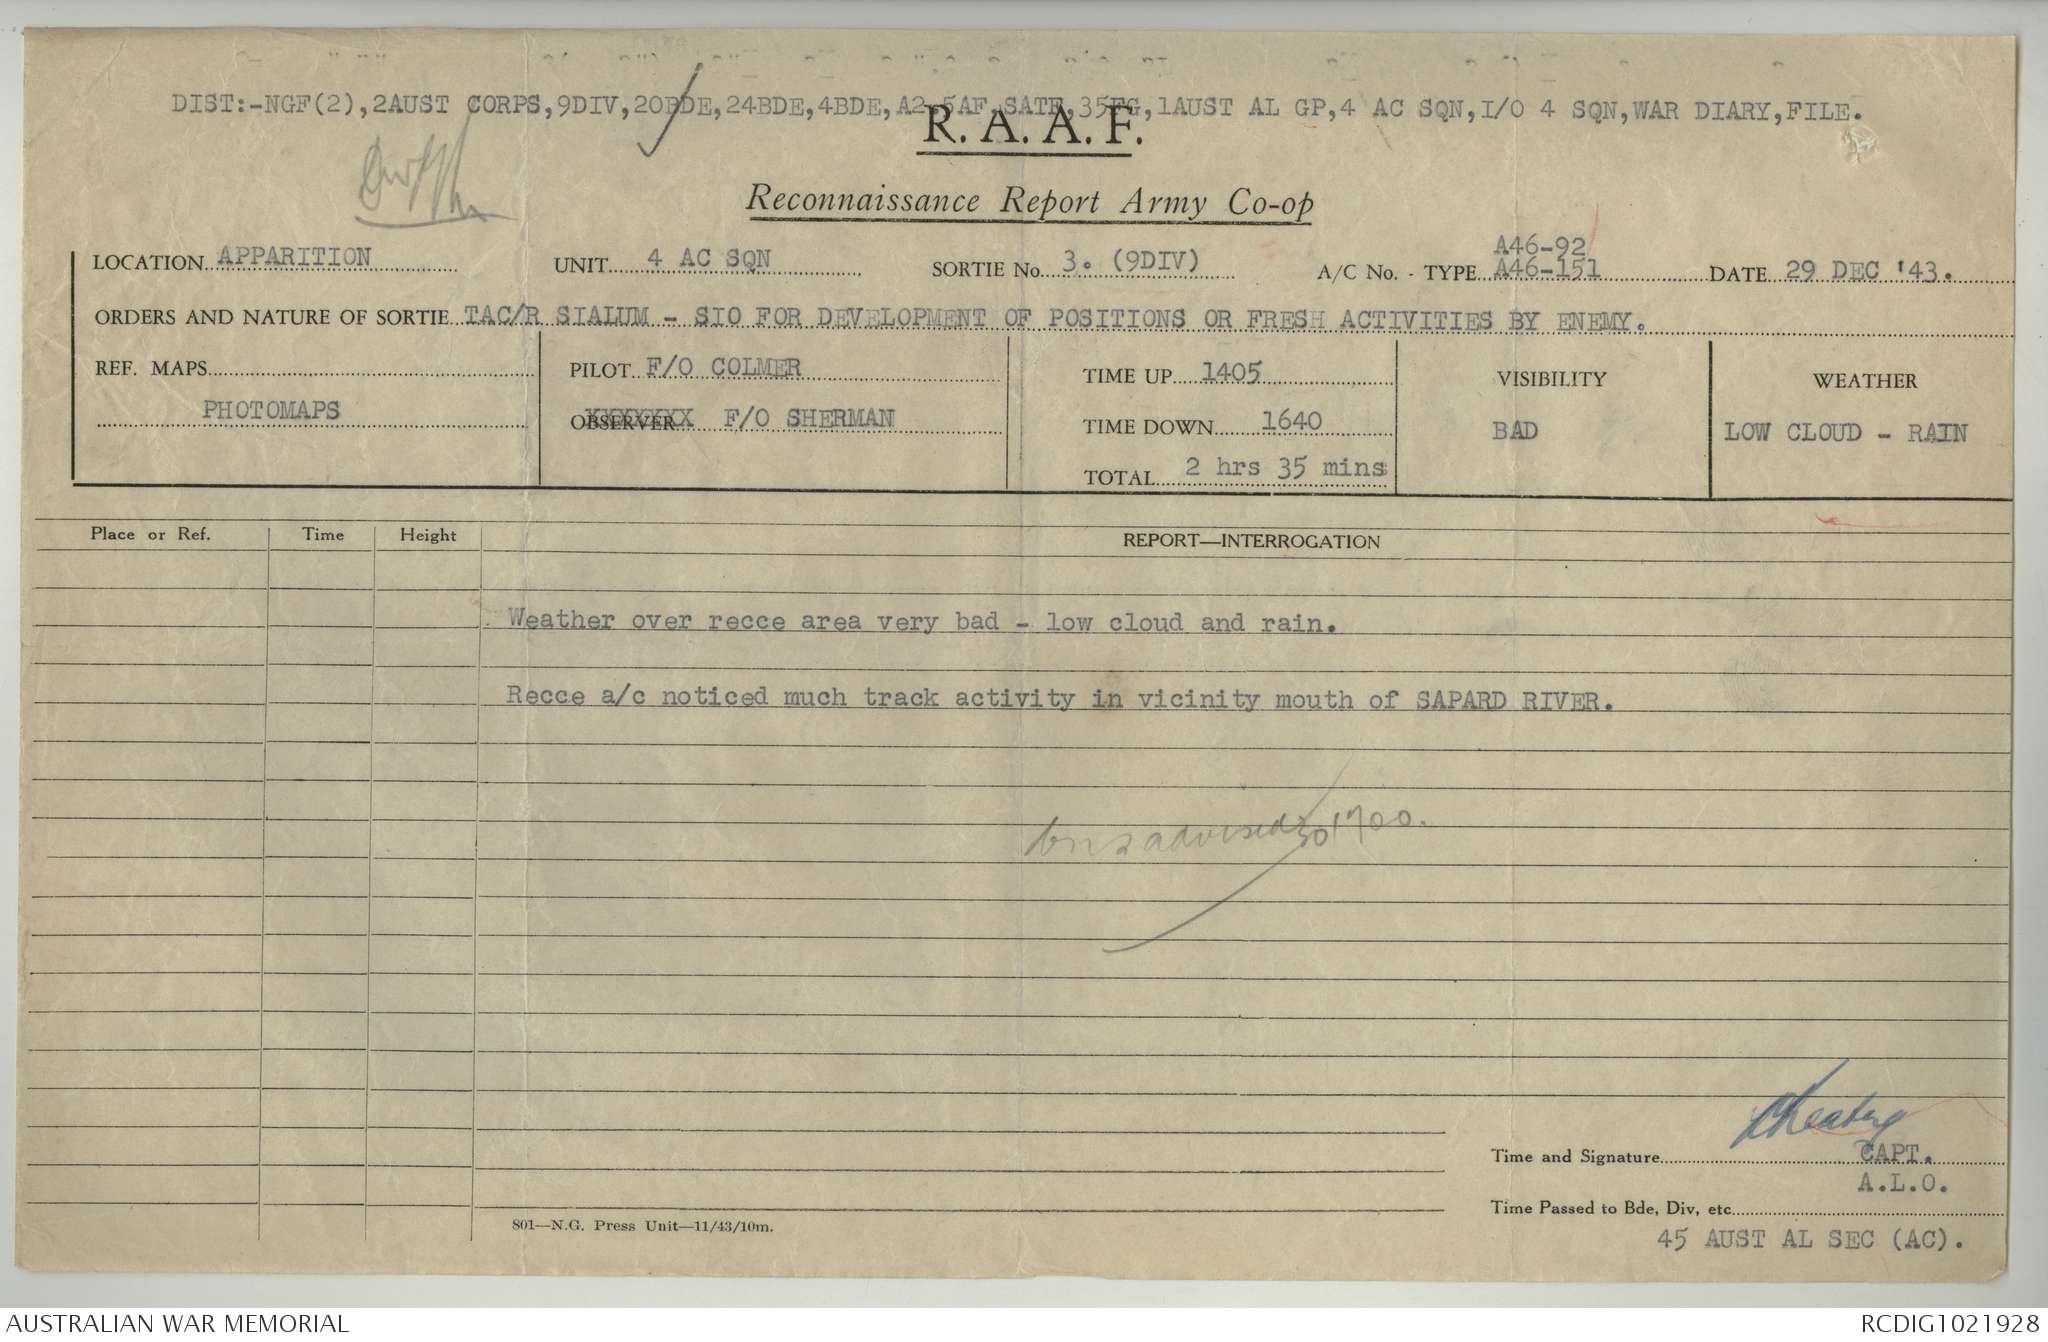 DIST:-NGF(2),2AUST CORPS,9DIV,20BDE,24BDE,4BDE,A2,5AF,SATF,35FG,1AUST AL GP,4 AC SQN,I/O 4 SQN,WAR DIARY,FILE.
R. A. A. F.
Reconnaissance Report Army Co-op
LOCATION APPARITION UNIT 4 AC SQN SORTIE No. 3. (9DIV) A/C No. - TYPE A46-92 A46-151 DATE 29 DEC '43.
ORDERS AND NATURE OF SORTIE TAC/R SIALUM - SIO FOR DEVELOPMENT OF POSITIONS OR FRESH ACTIVITIES BY ENEMY.
REF. MAPS PHOTOMAPS
PILOT F/O COLMER
OBSERVER XXXXXXX F/O SHERMAN
TIME UP 1405
TIME DOWN 1640
TOTAL 2 hrs 35 mins
VISIBILITY
BAD
WEATHER
LOW CLOUD - RAIN
Place or Ref. Time Height REPORT—INTERROGATION
Weather over recce area very bad - low cloud and rain.
Recce a/c noticed much track activity in vicinity mouth of SAPARD RIVER.
advised 1700.
Keating
Time and Signature CAPT.
A.L.O.
Time Passed to Bde, Div, etc
45 AUST AL SEC (AC).
801—N.G. Press Unit—11/43/10m.
AUSTRALIAN WAR MEMORIAL RCDIG1021928